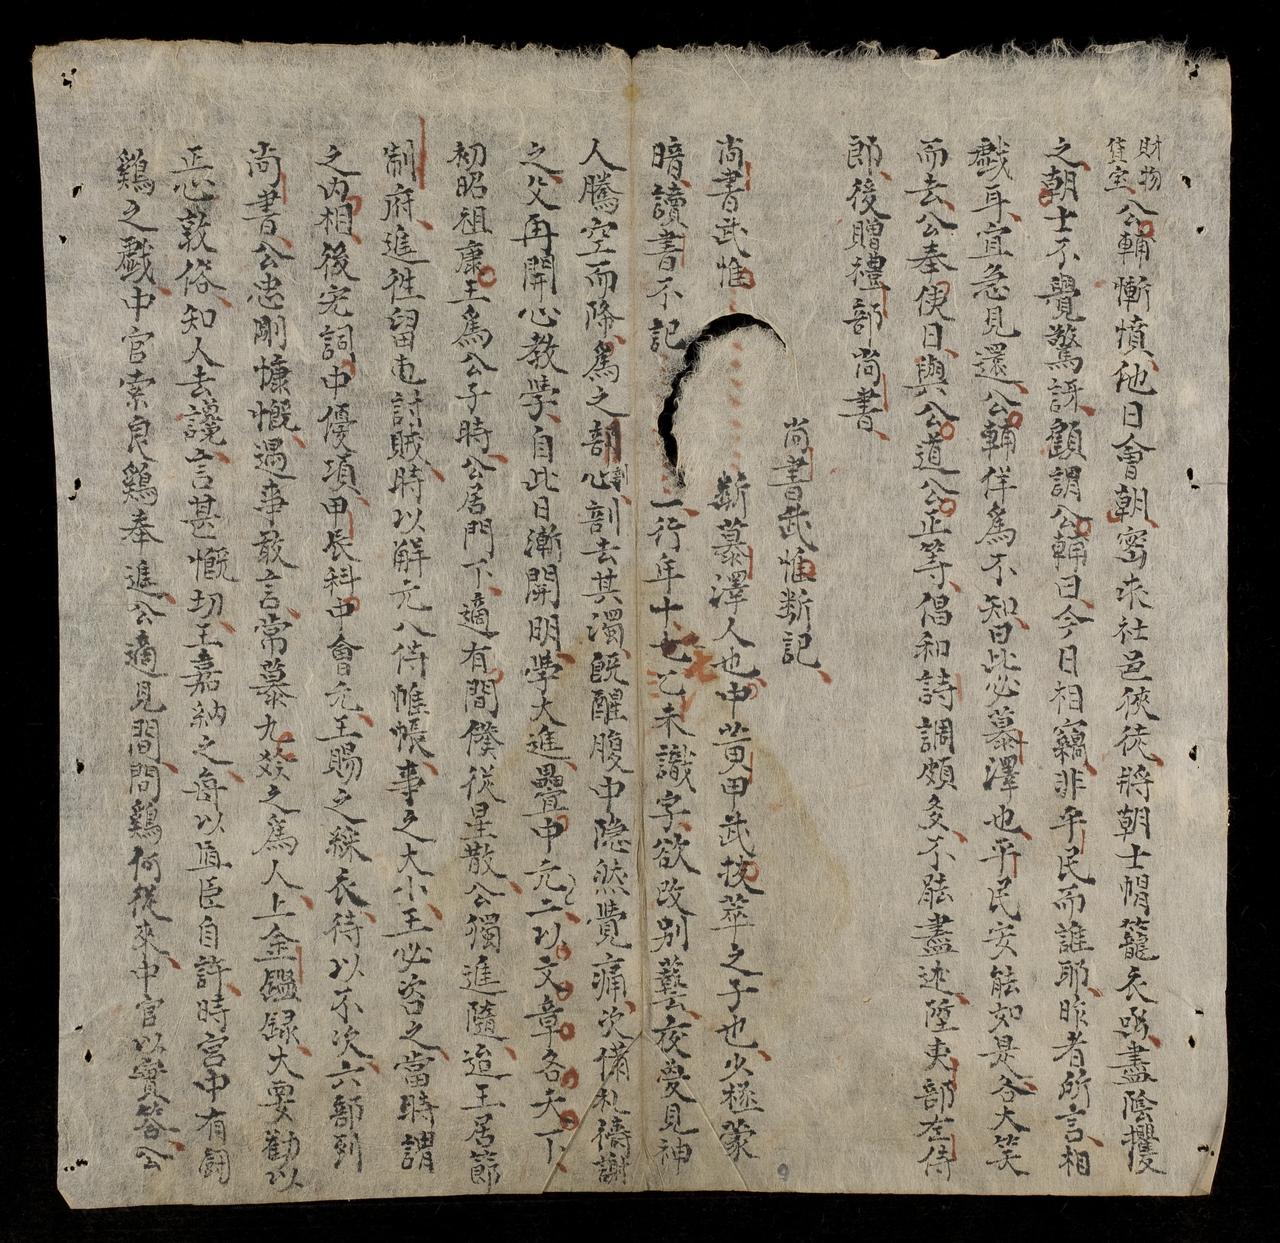 財物
貨宝 公輔慚憤他日會朝密求社邑俠徒將朝士帽籠衣函盡陰攫
之朝士不覺驚訝顧謂公輔曰今日相竊非乎民而誰耶昨者所言相
戲耳宜急見還公輔佯爲不知曰此必慕澤也平民安能如是各大笑
而去公奉使日與公道公正等倡和詩調頗多不能盡述陞吏部左侍
郎後贈禮部尚書
尚書武惟断記
尚書武惟 断慕澤人也中黄甲武拔萃之子也少極蒙
暗讀書不記 一行年十七乙未識字欲改别藝夜夢見神
人騰空而降爲之剖心割去其濁既醒腹中隐然覺痛次備礼禱謝
之父再開心教學自此日漸開明學大進疊中元二以文章各天下
初昭祖康王爲公子時公居門下適有間僕從星散公獨進隨迨王居節
制府進徃留屯討賊時以解元入侍帷帳事之大小王必咨之當時謂
之内相後宏詞中優項甲辰科中會元王賜之綵衣待以不次六部列
尚書公忠剛慷慨遇事敢言常慕九齡之爲人上金鑑録大要勸以
正心敦俗知人去讒言甚慨切王嘉納之毎以直臣自許時宮中有鬪
鷄之戲中官索良鷄奉進公適見間問鷄何從來中官以實答公